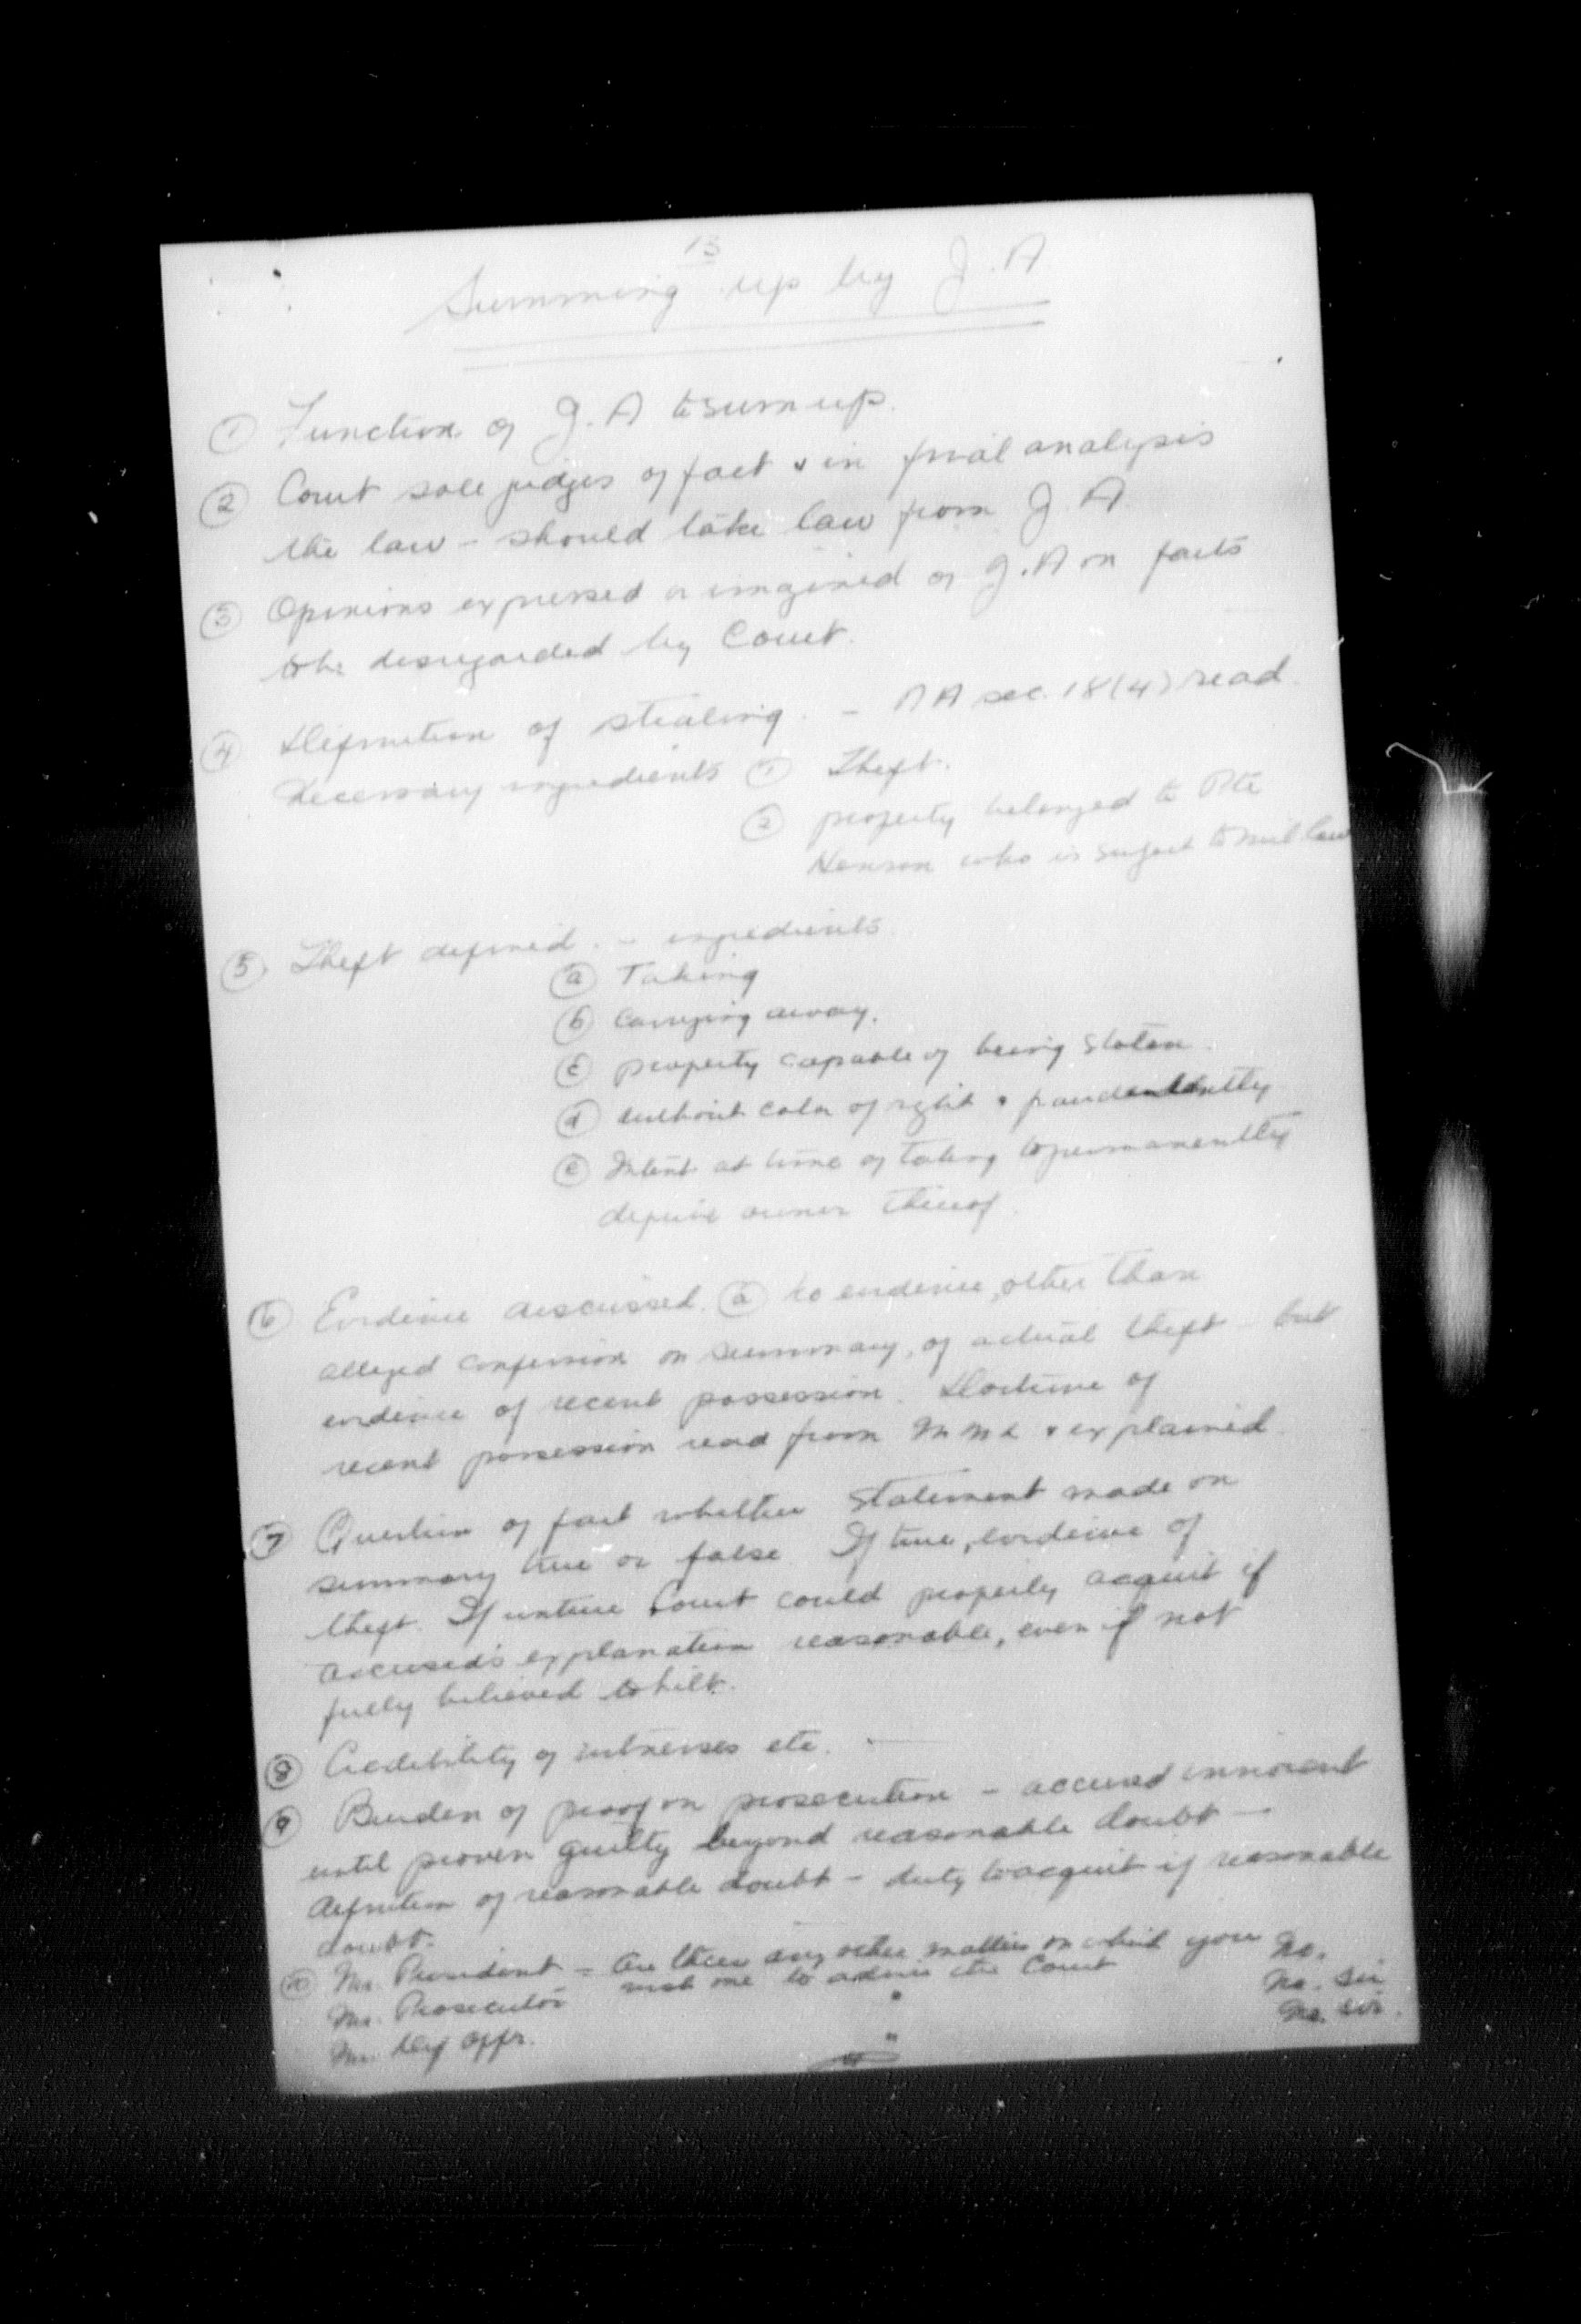 13
Summing up by J.A
① Function of J.A to sum up.
② Court sole judges of fact & in final analysis
the law - should take law from J.A
③ Opinions expressed or imagined of J.A on facts
to be disregarded by Court.
④ Definition of stealing. - AA sec. 18(4) read.
Necessary ingredients ① Theft.
② property belonged to Pte
who is subject to mil law
⑤ Theft defined. - ingredients
ⓐ Taking
ⓑ Carrying away.
ⓒ property capable of being stolen.
ⓓ without color of right & fraudulently
ⓔ Intent at time of taking to permanently
deprive owner thereof.
⑥ Evidence discussed. ⓐ no evidence, other than
alleged confession on summary, of actual theft - but
evidence of recent possession. Doctrine of
recent possession read from MML & explained.
⑦ Question of fact whether statement made on
summary true or false. If true, evidence of
theft. If untrue Court could properly acquit if
accused's explanation reasonable, even if not
fully believed to hilt.
⑧ Credibility of witnesses etc. —
⑨ Burden of proof on prosecution - accused innocent
until proven guilty beyond reasonable doubt -
definition of reasonable doubt - duty to acquit if reasonable
doubt.
⑩ Mr. President - Are there any other matters on which you No.
wish me to advise the Court
Mr. Prosecutor " No. Sir
Mr. Def Offr. " No. Sir.